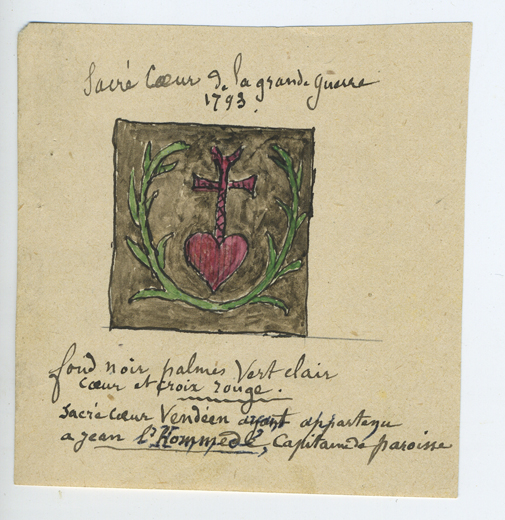 Sacré Cœur de la grande guerre
1793.
fond noir palmes vert clair
cœur et croix rouge.
Sacré cœur Vendéen ayant appartenu
a jean l'Hommedé, Capitaine de paroisse